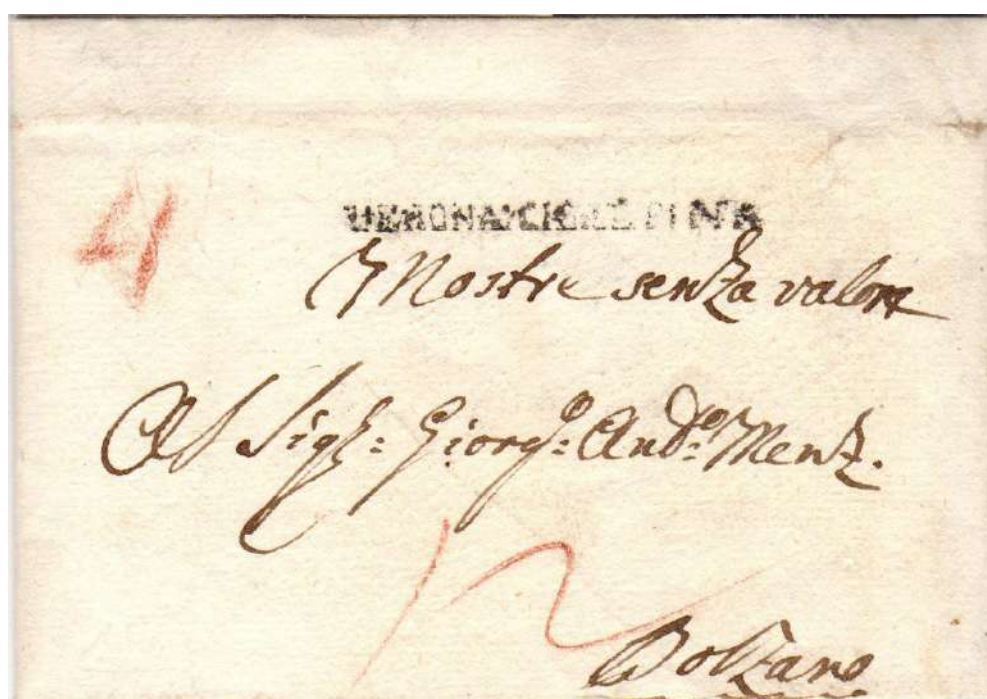 4
VERONA
Mostre senza valore
Al Sigr: Giorgo: Ando: Mentz.
12
Bolzano